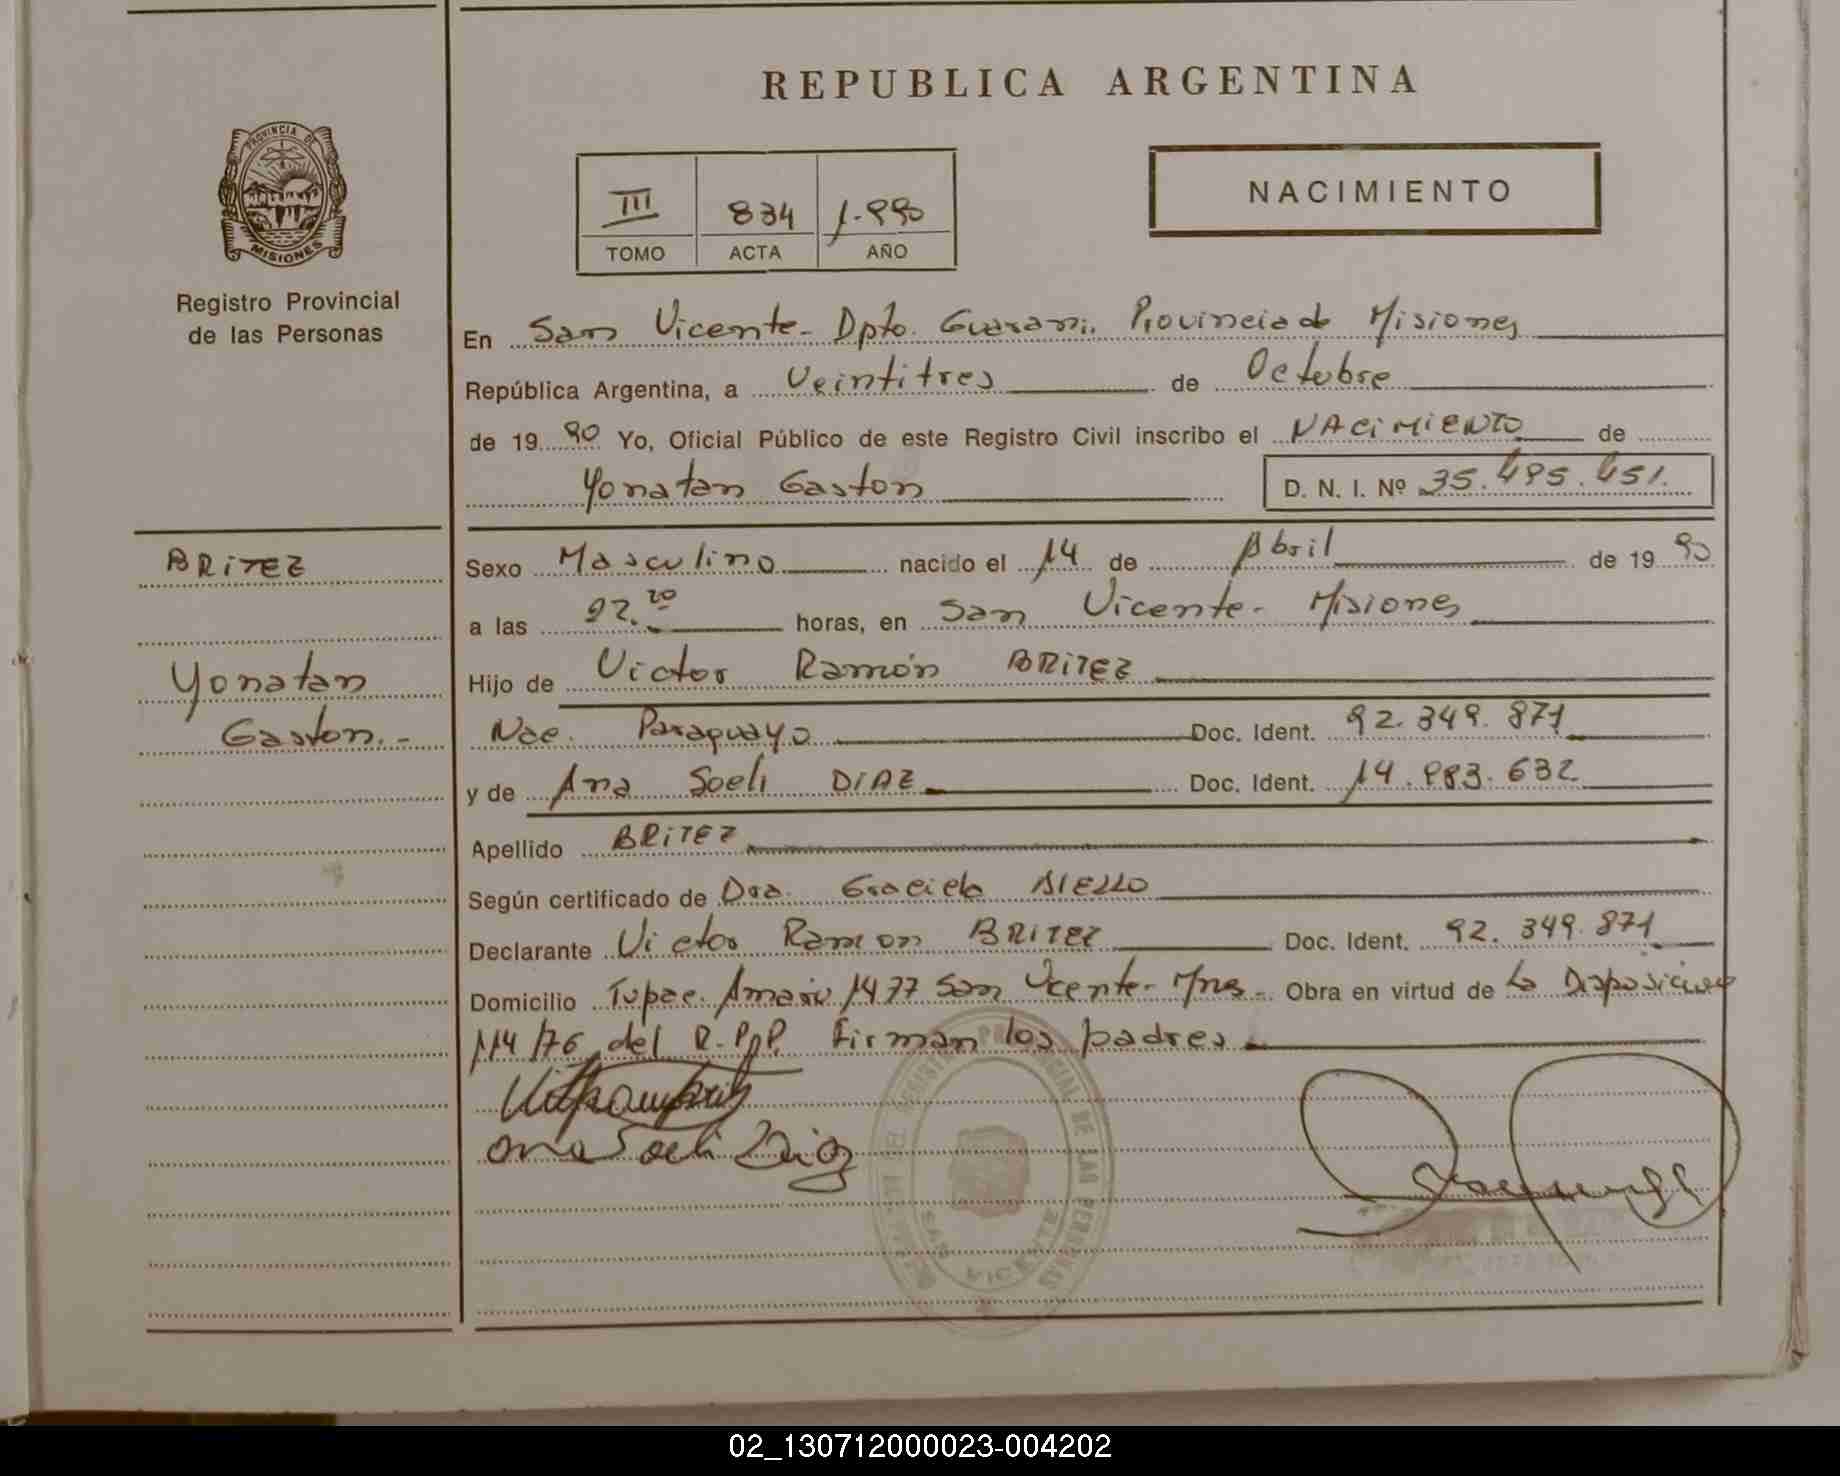 REPUBLICA ARGENTINA
PROVINCIA DE
MISIONES
Registro Provincial
de las Personas
III 834 1.990
TOMO ACTA AÑO
NACIMIENTO
En San Vicente - Dpto. Guarani. Provincia de Misiones
República Argentina, a Veintitres de Octubre
de 19 90 Yo, Oficial Público de este Registro Civil inscribo el NACIMIENTO de
Yonatan Gaston D. N. I. Nº 35.495.451.
BRITEZ
Yonatan
Gaston.-
Sexo Masculino nacido el 14 de Abril de 19 90
a las 22.20 horas, en San Vicente - Misiones
Hijo de Victor Ramón BRITEZ
Nac. Paraguayo Doc. Ident. 92.349.871
y de Ana Soeli DIAZ Doc. Ident. 14.983.632
Apellido BRITEZ
Según certificado de Dra. Graciela AIELLO
Declarante Victor Ramon BRITEZ Doc. Ident. 92.349.871
Domicilio Tupac Amaru 1477 San Vicente - Mnes - Obra en virtud de la Disposicion
114/76 del R.P.P. Firman los padres
Ana Soeli Diaz
REGISTRO PROVINCIAL DE LAS PERSONAS
SAN VICENTE
02_130712000023-004202